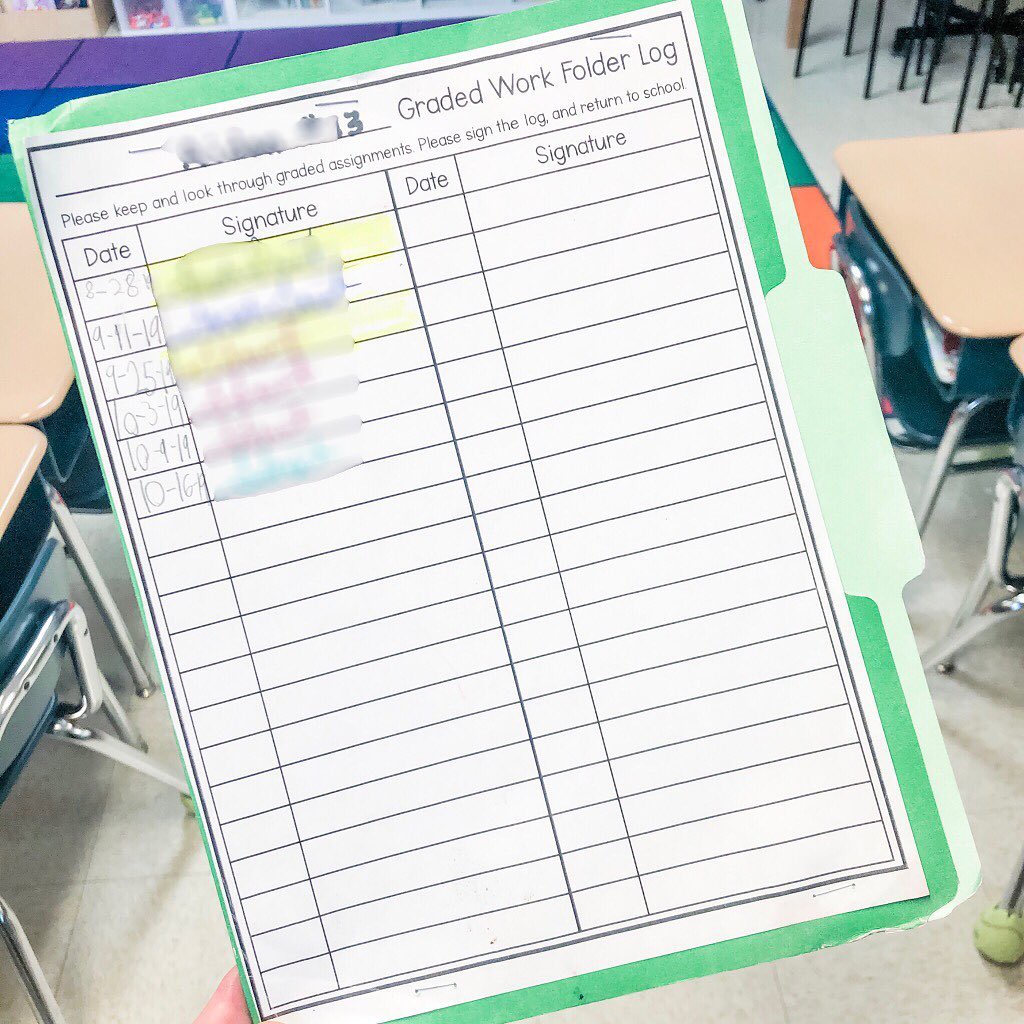 13 Graded Work Folder Log
Please keep and look through graded assignments. Please sign the log, and return to school.
Date Signature Date Signature
8-28-
9-11-19
9-25-19
10-3-19
10-9-19
10-16-